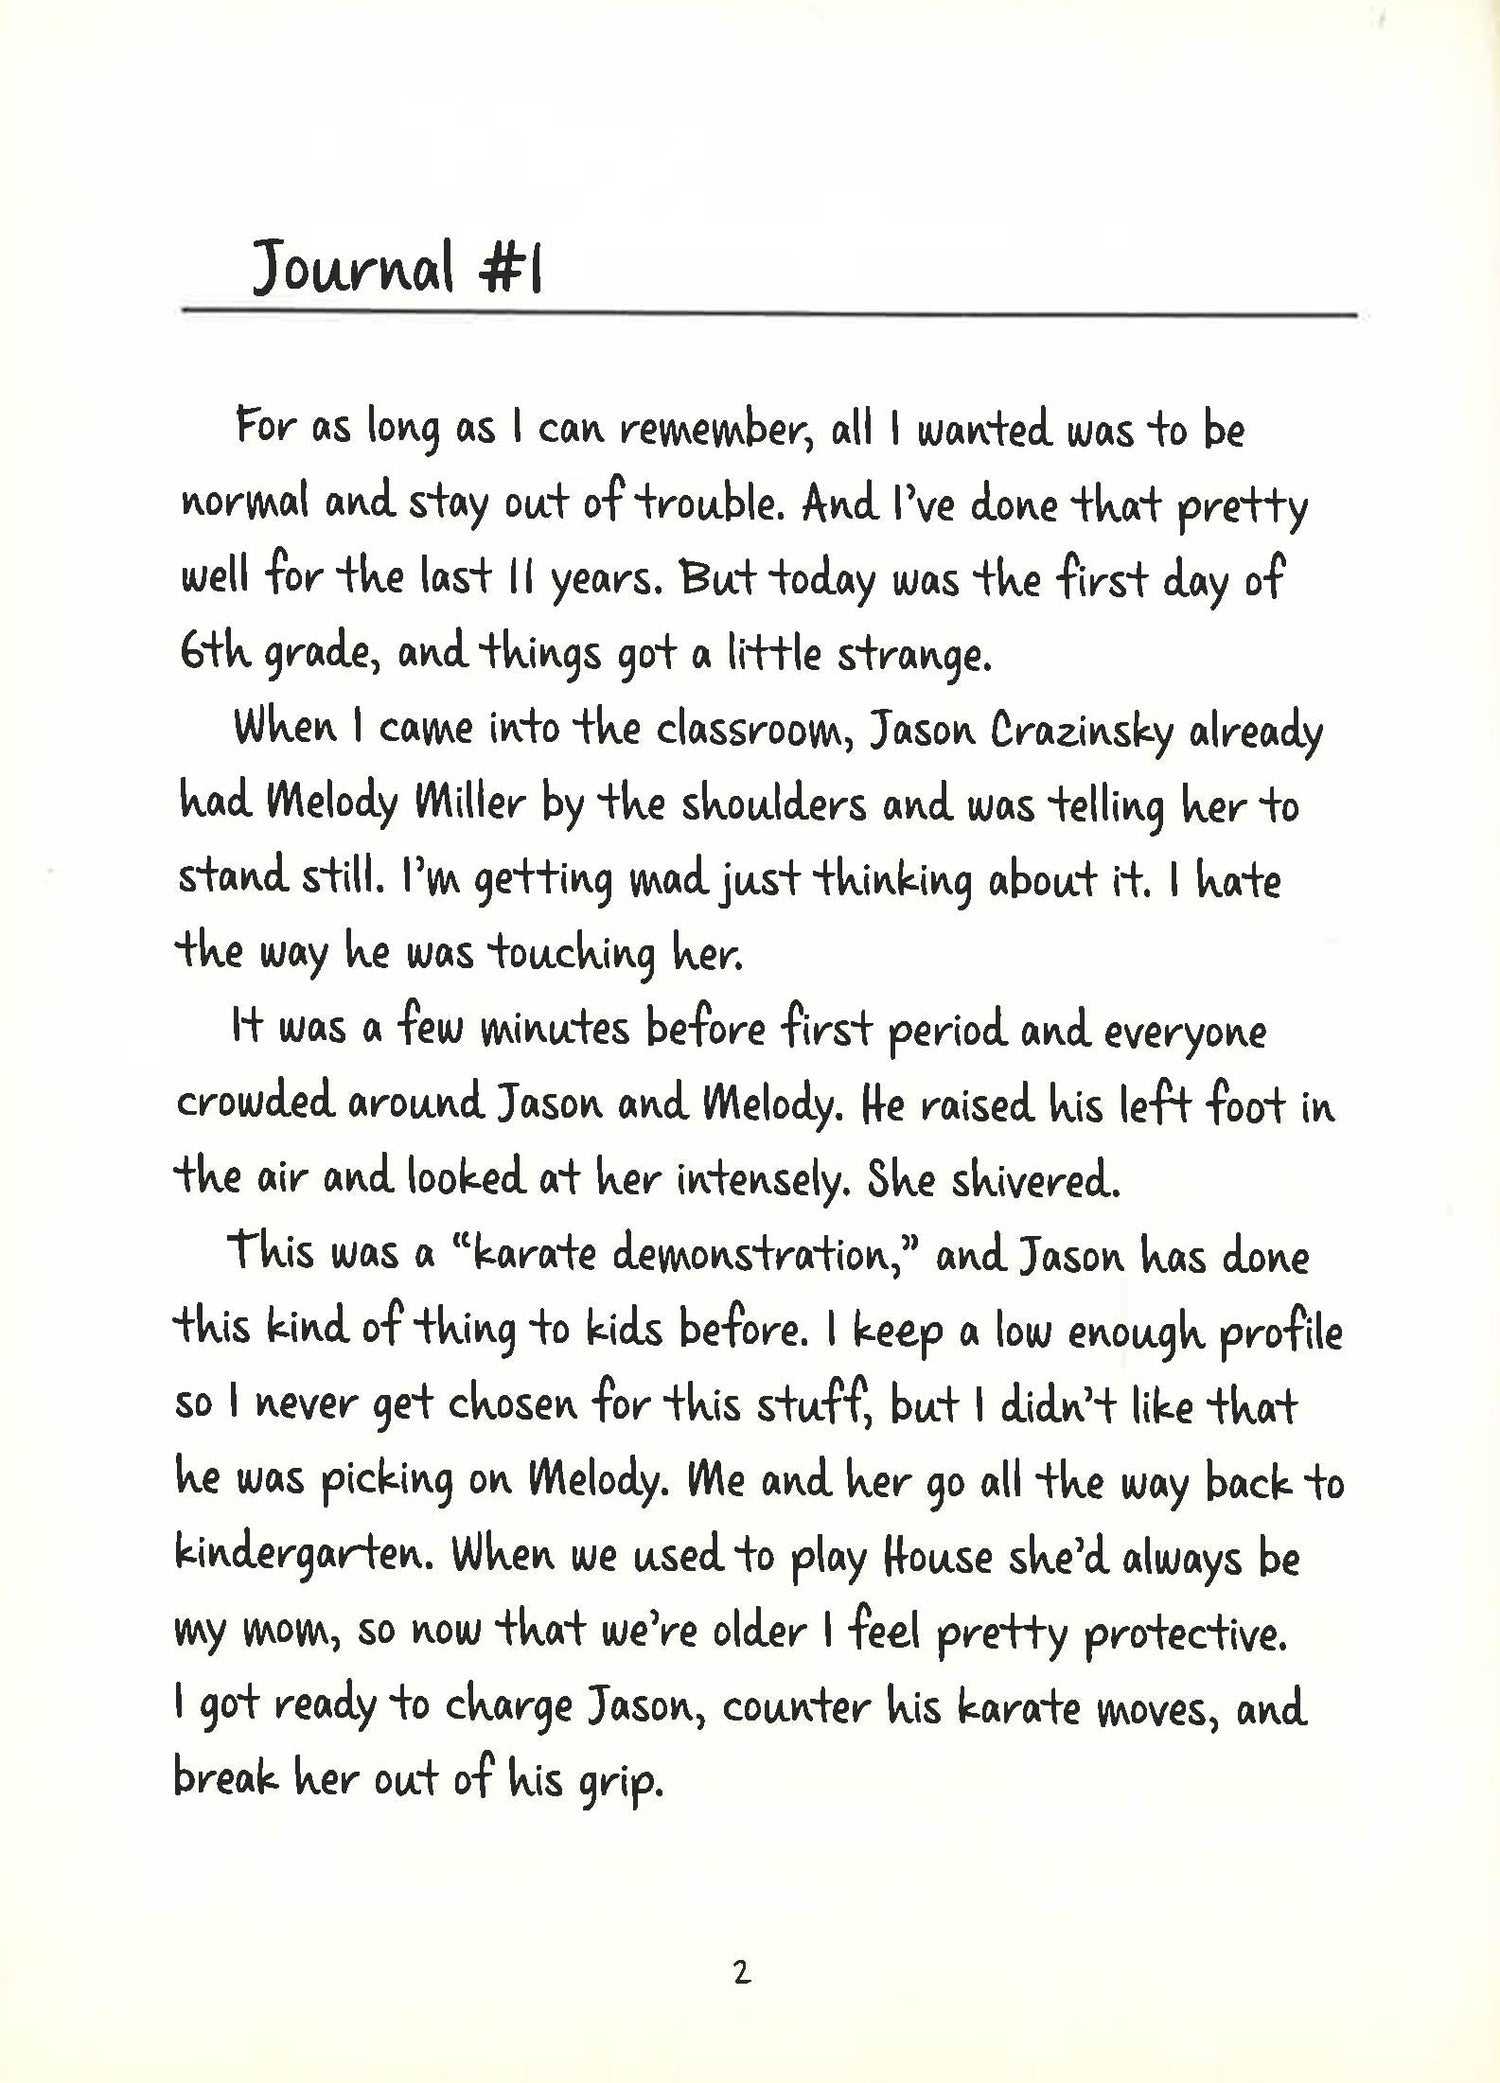 Journal #1
For as long as I can remember, all I wanted was to be
normal and stay out of trouble. And I've done that pretty
well for the last 11 years. But today was the first day of
6th grade, and things got a little strange.
When I came into the classroom, Jason Crazinsky already
had Melody Miller by the shoulders and was telling her to
stand still. I'm getting mad just thinking about it. I hate
the way he was touching her.
It was a few minutes before first period and everyone
crowded around Jason and Melody. He raised his left foot in
the air and looked at her intensely. She shivered.
This was a “karate demonstration,” and Jason has done
this kind of thing to kids before. I keep a low enough profile
so I never get chosen for this stuff, but I didn't like that
he was picking on Melody. Me and her go all the way back to
kindergarten. When we used to play House she'd always be
my mom, so now that we're older I feel pretty protective.
I got ready to charge Jason, counter his karate moves, and
break her out of his grip.
2